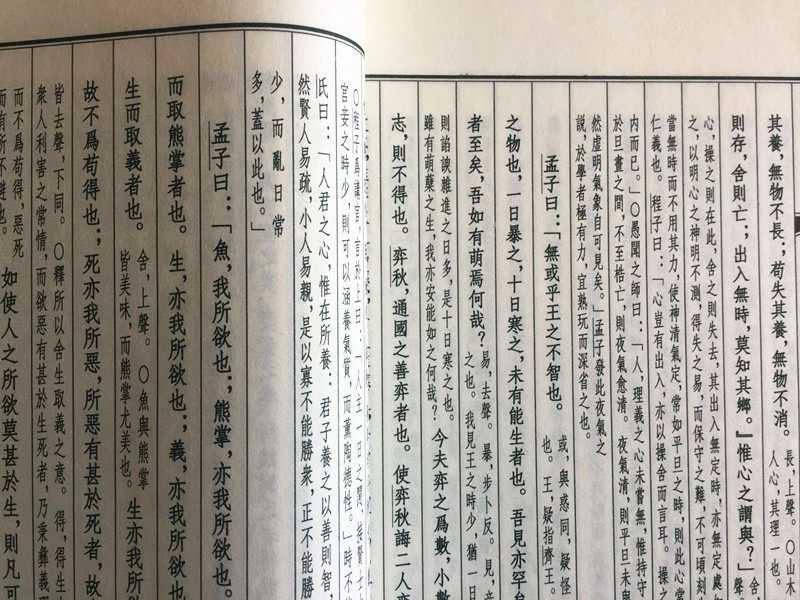 其養，無物不長；苟失其養，無物不消。長，上聲。〇山木
人心，其理一也。
則存，舍則亡；出入無時，莫知其鄉。』惟心之謂與？」舍，
聲
心，操之則在此，舍之則失去，其出入無定時，亦無定處如
之，以明心之神明不測，得失之易，而保守之難，不可頃刻
當無時而不用其力，使神清氣定，常如平旦之時，則此心常
仁義也。程子曰：「心豈有出入，亦以操舍而言耳。操之
內而已。」〇愚聞之師曰：「人，理義之心未嘗無，惟持守
於旦晝之間，不至梏亡，則夜氣愈清。夜氣清，則平旦未與
然虛明氣象自可見矣。」孟子發此夜氣之
說，於學者極有力，宜熟玩而深省之也。
孟子曰：「無或乎王之不智也。或，與惑同，疑怪
也。王，疑指齊王。
之物也，一日暴之，十日寒之，未有能生者也。吾見亦罕矣
者至矣，吾如有萌焉何哉？易，去聲。暴，步卜反。見，音
之也。我見王之時少，猶一日
則諂諛雜進之日多，是十日寒之也。
雖有萌蘖之生，我亦安能如之何哉？今夫弈之爲數，小數
志，則不得也。弈秋，通國之善弈者也。使弈秋誨二人弈
〇程子爲講官，言於上曰：「人主一日之間，接賢士
宮妾之時少，則可以涵養氣質，而薰陶德性。」時不
氏曰：「人君之心，惟在所養：君子養之以善則智，
然賢人易疏，小人易親，是以寡不能勝衆，正不能勝
少，而亂日常
多，蓋以此也。」
孟子曰：「魚，我所欲也；熊掌，亦我所欲也。
而取熊掌者也。生，亦我所欲也；義，亦我所欲也。
生而取義者也。舍，上聲。〇魚與熊掌
皆美味，而熊掌尤美也。生亦我所欲
故不爲苟得也；死亦我所惡，所惡有甚於死者，故
皆去聲，下同。〇釋所以舍生取義之意。得，得生
衆人利害之常情，而欲惡有甚於生死者，乃秉彝義理
而不爲苟得，惡死
而有所不避也。如使人之所欲莫甚於生，則凡可